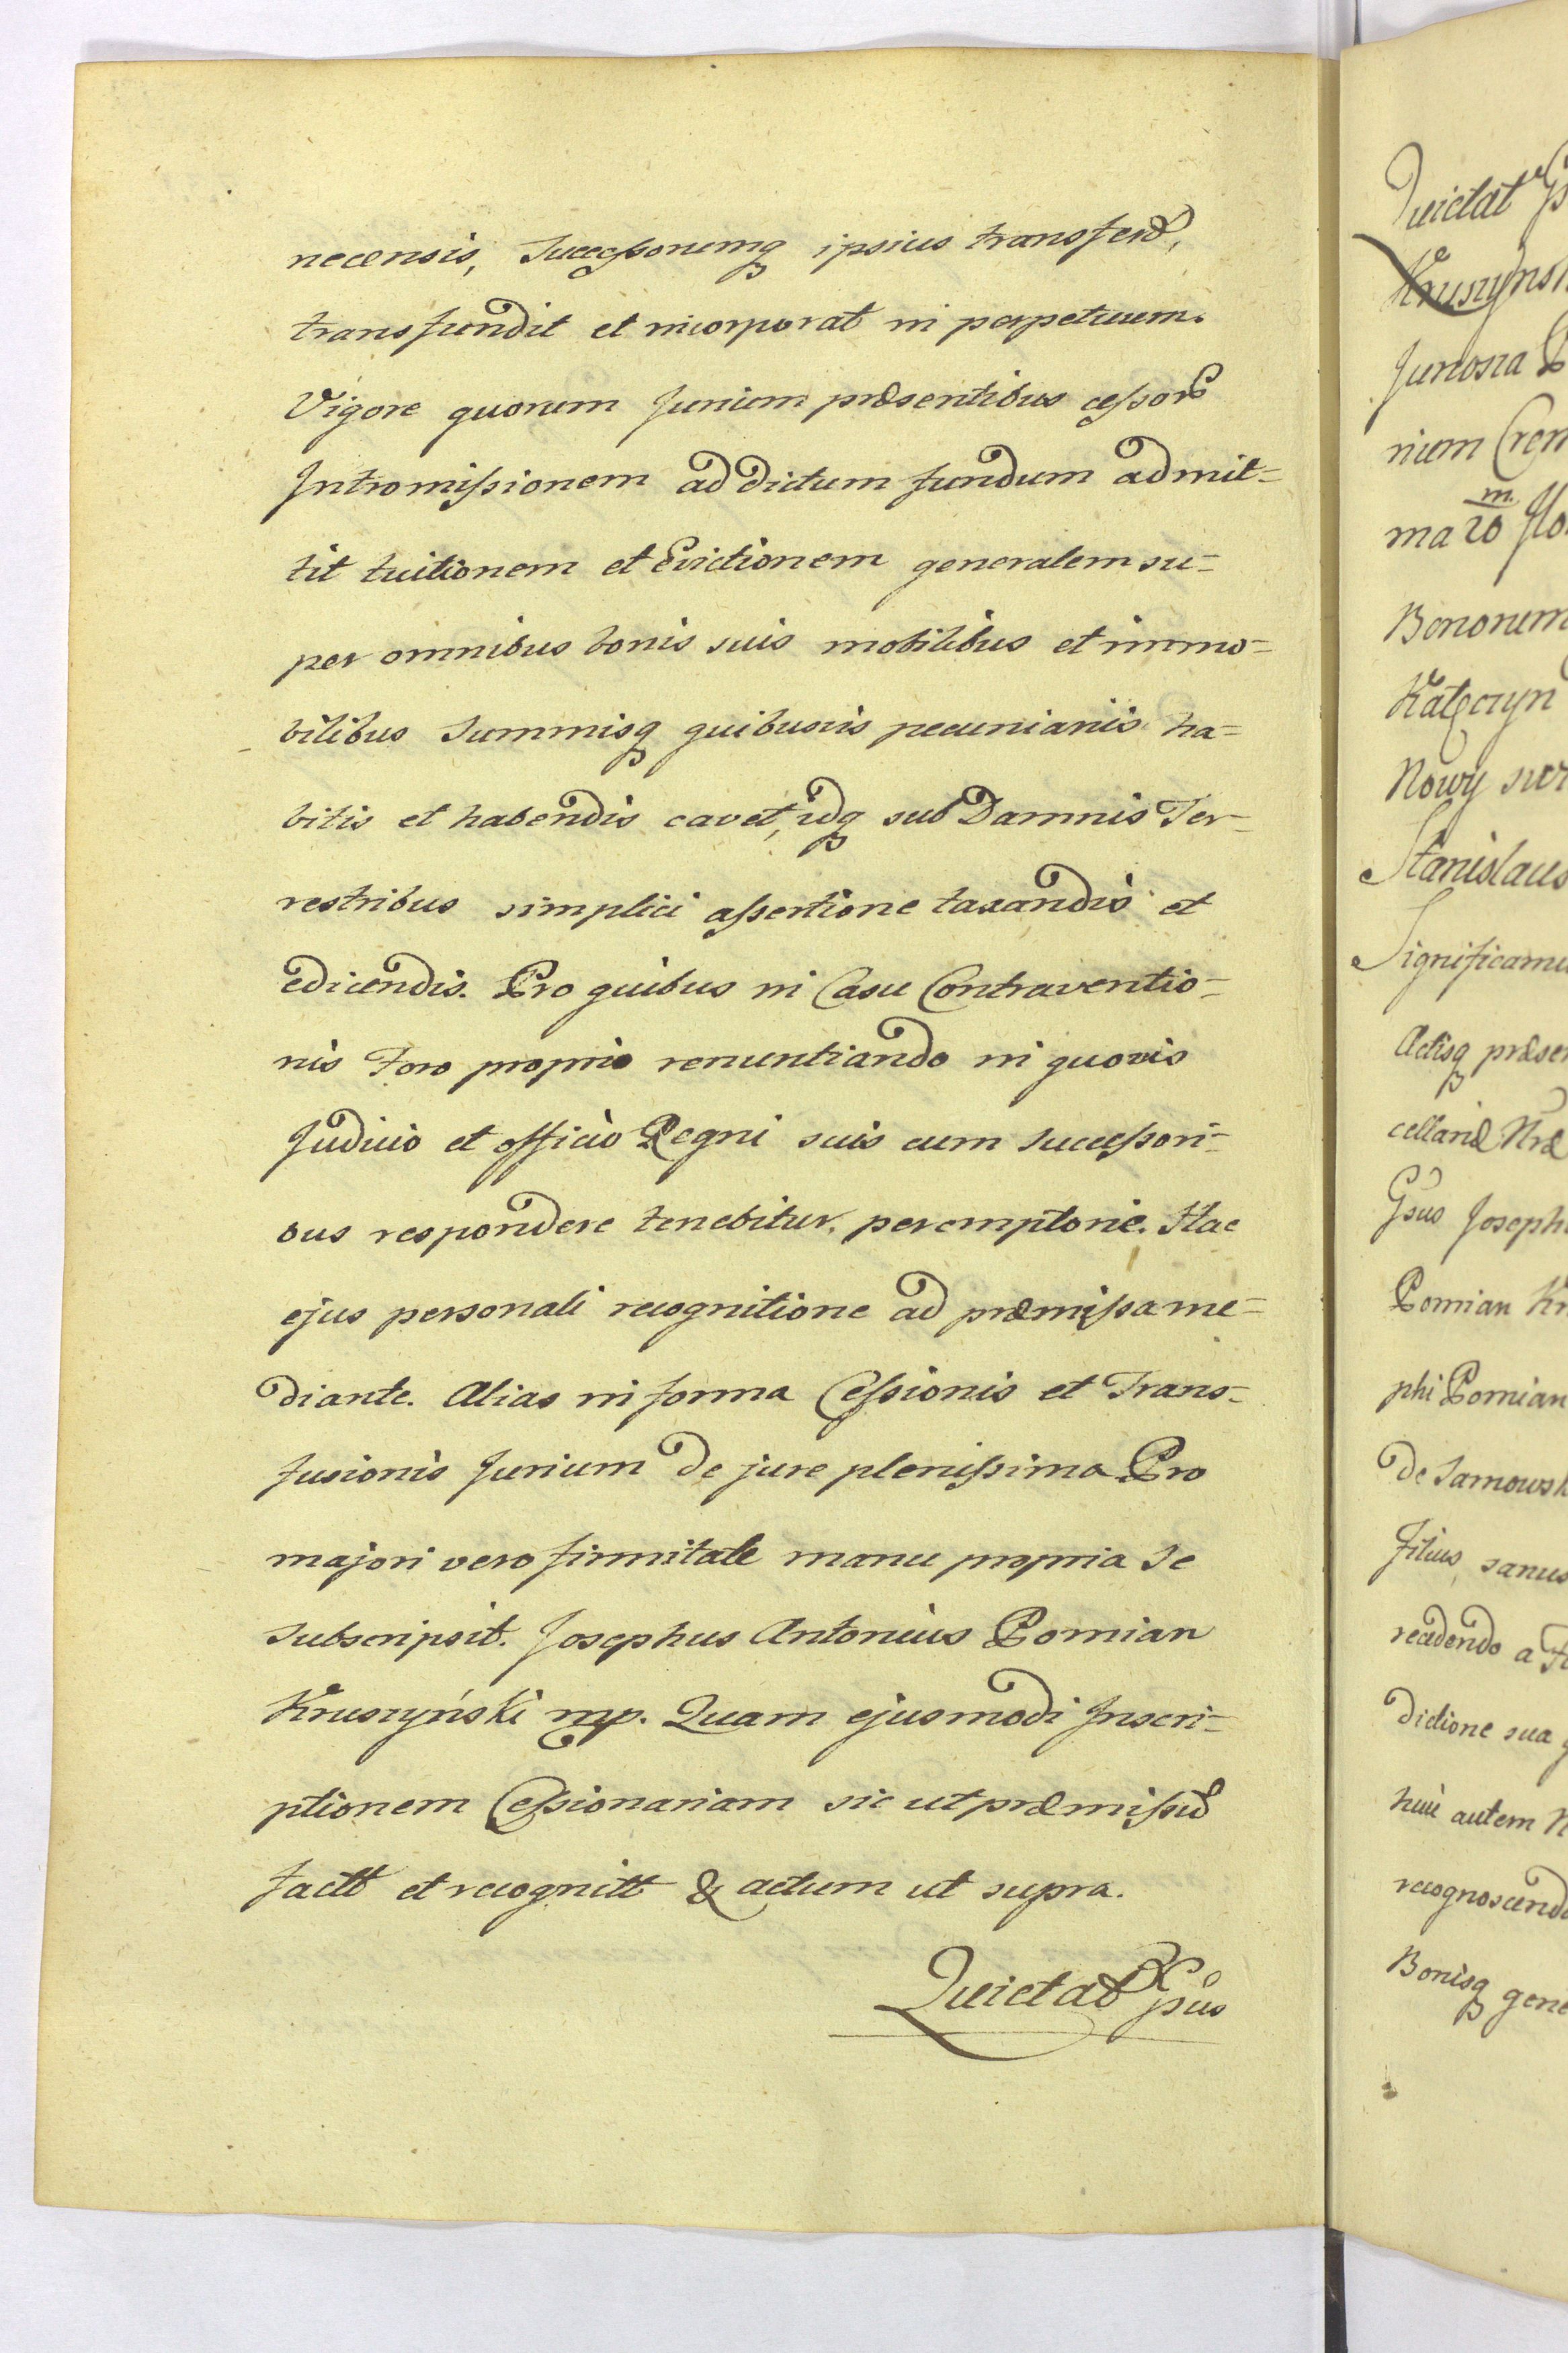 necensis, Successorumq ipsius transferd,
transfundit et incorporat in perpetuum.
Vigore quorum Jurium præsentibus cessor
Intromissionem ad dictum fundum admit-
tit tuitionem et Evictionem generalem su-
per omnibus bonis suis mobilibus et immo-
bilibus Summisq quibusvis pecuniariis ha-
bitis et habendis cavet, idq sub Damnis Ter-
restribus simplici assertione taxandis et
edicendis. Pro quibus in Casu Contraventio-
nis Foro proprio renuntiando in quovis
Judicio et officio Regni suis cum Successori-
bus respondere tenebitur. peremptorie. Hac
ejus personali recognitione ad præmissa me-
diante. Alias in forma Cessionis et Trans-
fusionis Jurium de jure plenissima Pro
majori vero firmitate manu propria Se
Subscripsit. Josephus Antonius Pomian
Kruszyński mp. Quam ejusmodi Inscri-
ptionem Cessionariam sic ut præmissũ
factt et recognitt & actum ut supra.
Quietat
Quietat
Kruszyńsk
Junosza
nium Crem
m.
ma 20 flo.
Bonorum
Kałęczyn
Nowy
Stanislaus
Significamu
Actisq præsen
cellariæ Nræ
Gsus Joseph
Pomian Kr
phi Pomian
de Sarnowsk
Filius, sanus
recedendo a
dictione sua
huic autem
recognoscendo
Bonisq gene